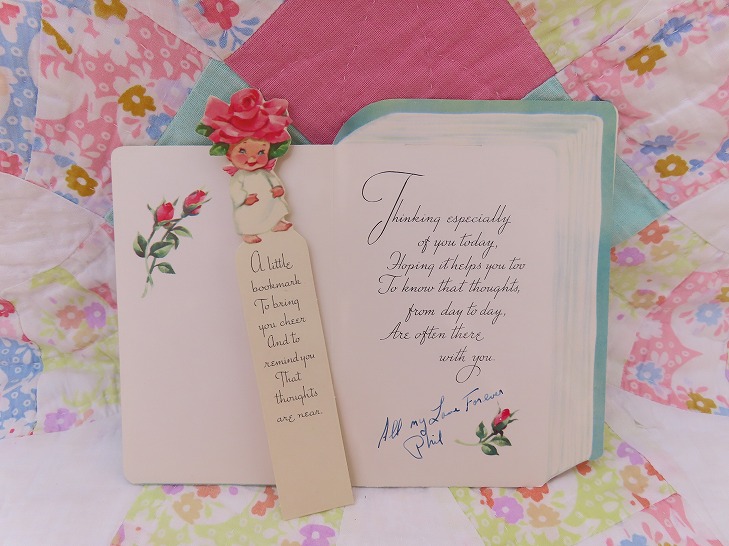 A little
bookmark
To bring
you cheer
And to
remind you
That
thoughts
are near.
Thinking especially
of you today,
Hoping it helps you too
To know that thoughts,
from day to day,
Are often there
with you.
All my Love Forever
Phil